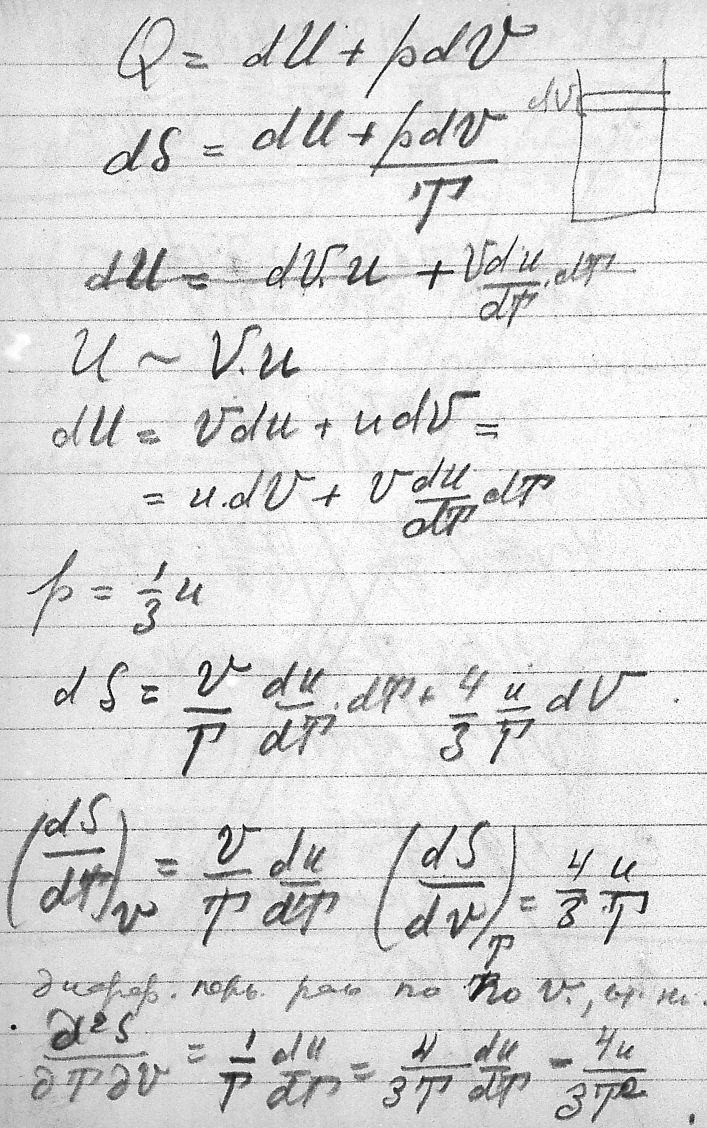 Q = dU + pdV
dV
dS = dU + pdV / T
dU = dV.u + V du/dT . dT
U ~ V.u
dU = Vdu + udV =
= u.dV + V du/dT dT
p = 1/3 u
dS = V/T du/dT . dT + 4/3 u/T dV
(dS/dT)_V = V/T du/dT (dS/dV)_T = 4/3 u/T
по по V.,
∂²S/∂T∂V = 1/T du/dT = 4/3T du/dT - 4u/3T²